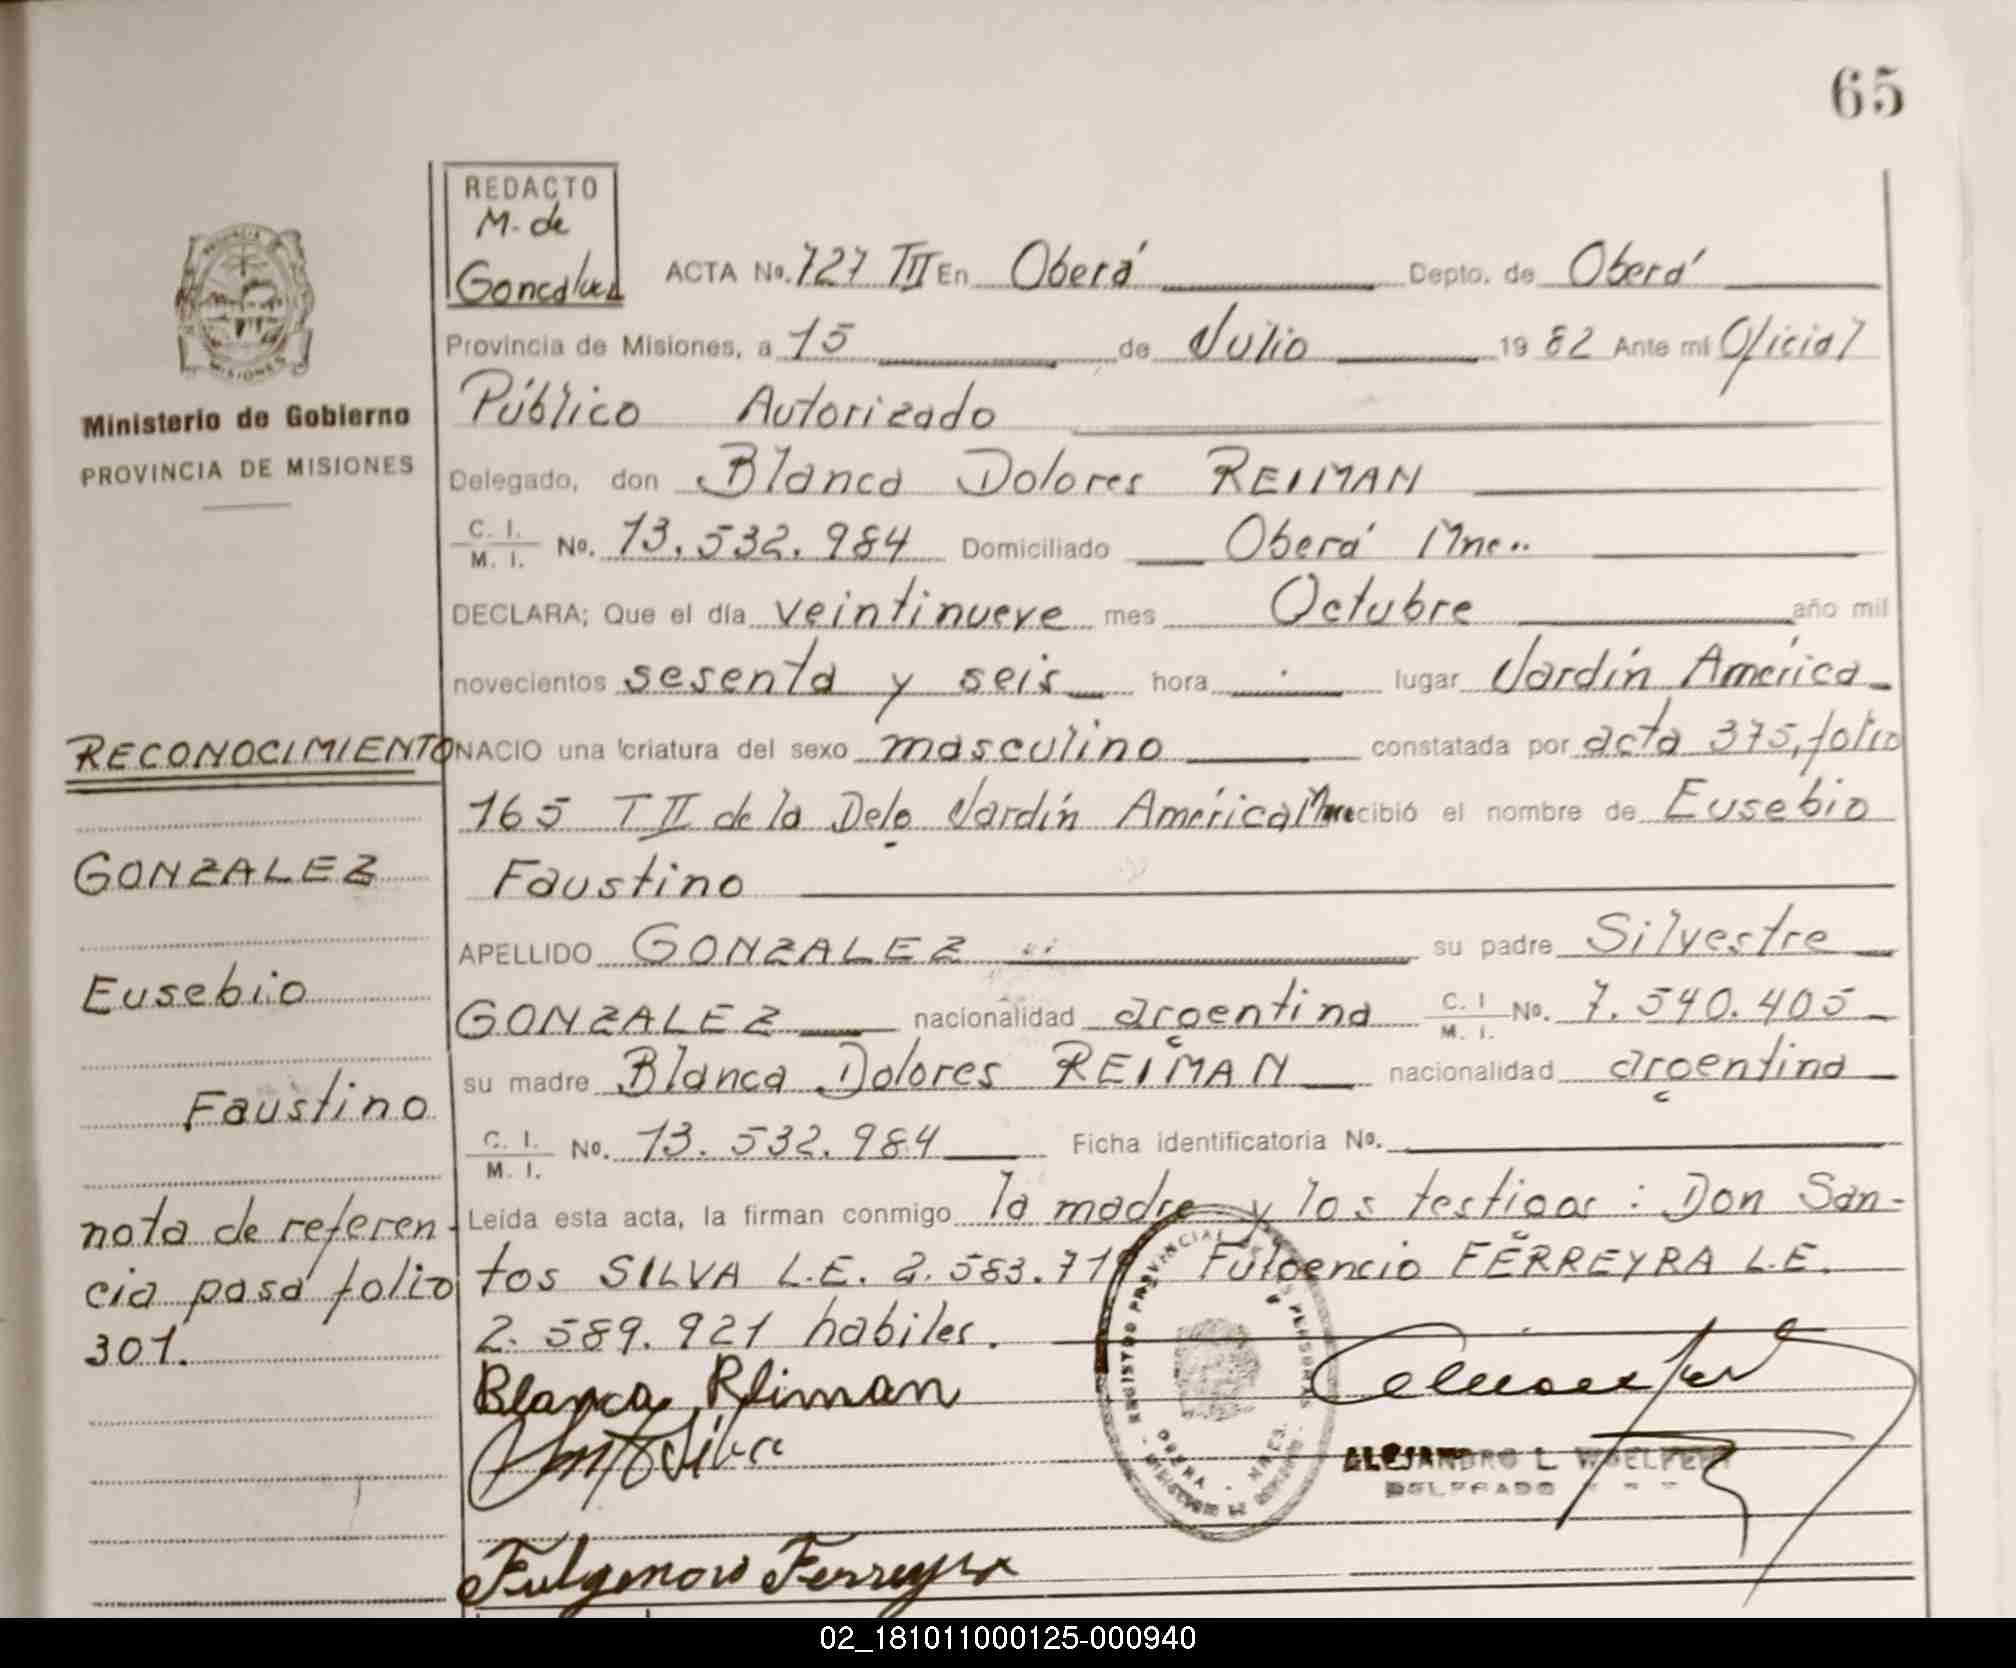 65
REDACTO
M. de
Goncalvez
ACTA No. 727 TII En Oberá Depto. de Oberá
Provincia de Misiones, a 15 de Julio 1982 Ante mi Oficial
Público Autorizado
Ministerio de Gobierno
PROVINCIA DE MISIONES
Delegado, don Blanca Dolores REIMAN
C. I. M. I. No. 13.532.984 Domiciliado Oberá Mnes.
DECLARA; Que el día veintinueve mes Octubre año mil
novecientos sesenta y seis hora lugar Jardín América
RECONOCIMIENTO
NACIO una criatura del sexo masculino constatada por acta 375, folio
165 TII de la Deleg. Jardín América recibió el nombre de Eusebio
Faustino
APELLIDO GONZALEZ su padre Silvestre
GONZALEZ nacionalidad argentina C. I. M. I. No. 7.540.405
su madre Blanca Dolores REIMAN nacionalidad argentina
C. I. M. I. No. 13.532.984 Ficha identificatoria No.
Leída esta acta, la firman conmigo la madre y los testigos: Don San-
tos SILVA L.E. 2.583.719 Fulgencio FERREYRA L.E.
2.589.921 habiles.
GONZALEZ
Eusebio
Faustino
nota de referen-
cia pasa folio
301.
Blanca Reiman
Silva
Fulgencio Ferreyra
REGISTRO PROVINCIAL DE LAS PERSONAS
OBERA - MNES.
ALEJANDRO L. WOELFERT
DELEGADO
02_181011000125-000940